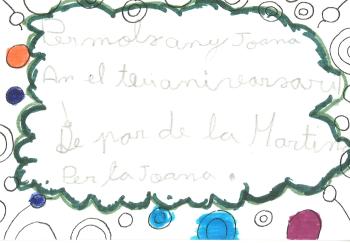 Per mols any Joana
An el teu anivarsari
De par de la Martin
Per la Joana.